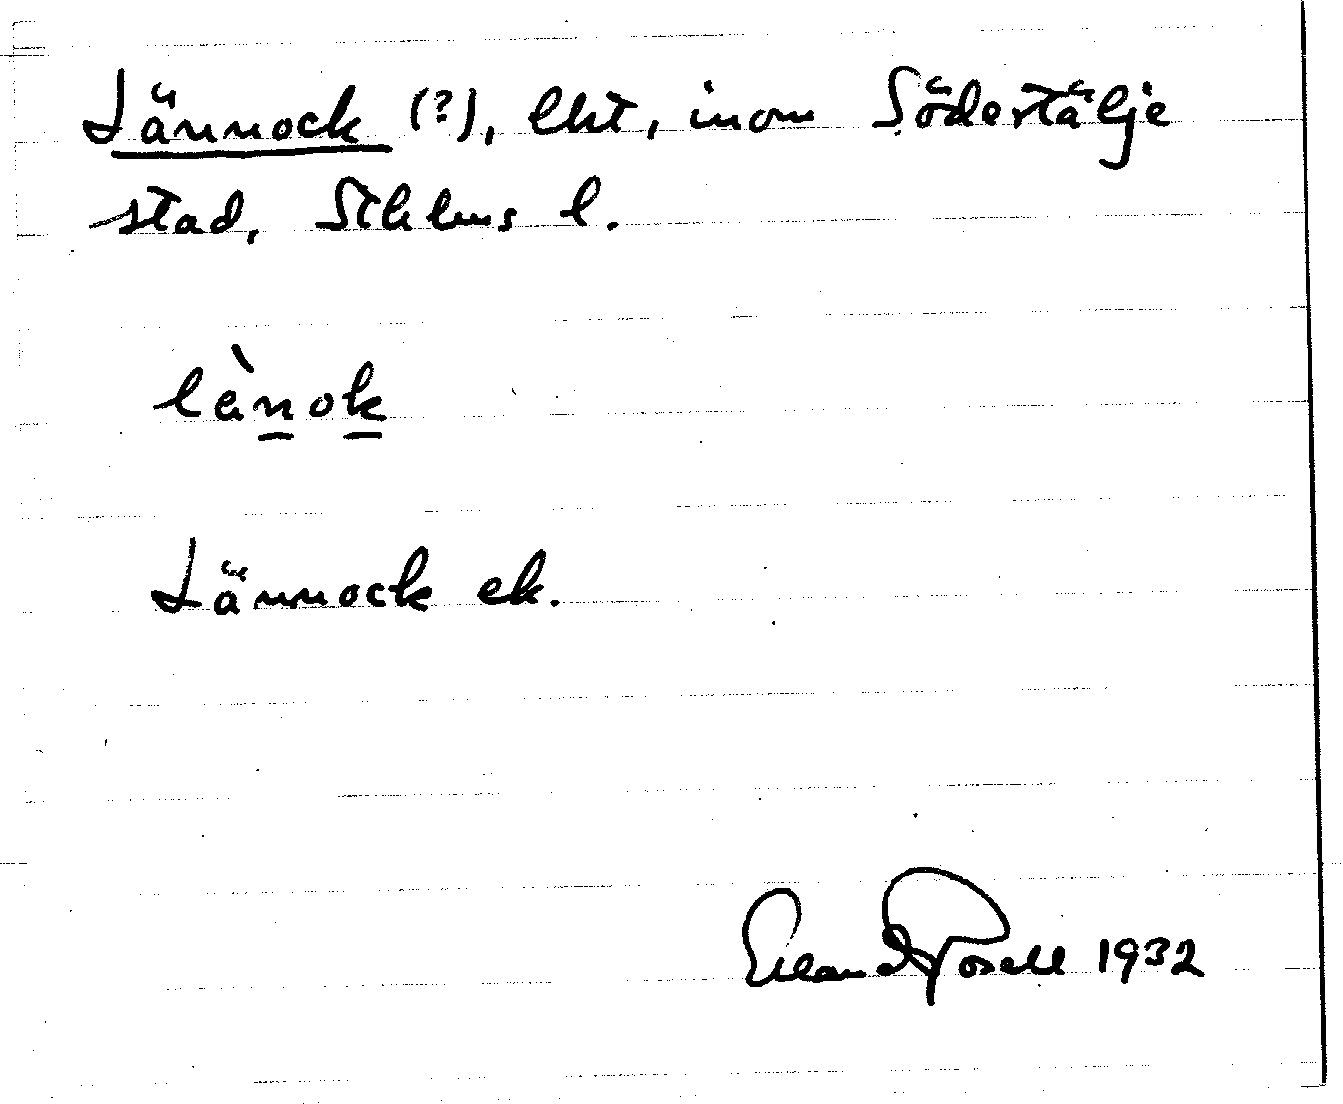 Lännock (?), lht, inom Södertälje
stad, Sthlms l.
lä̀nok
Lännock ek.
Erland Rosell 1932